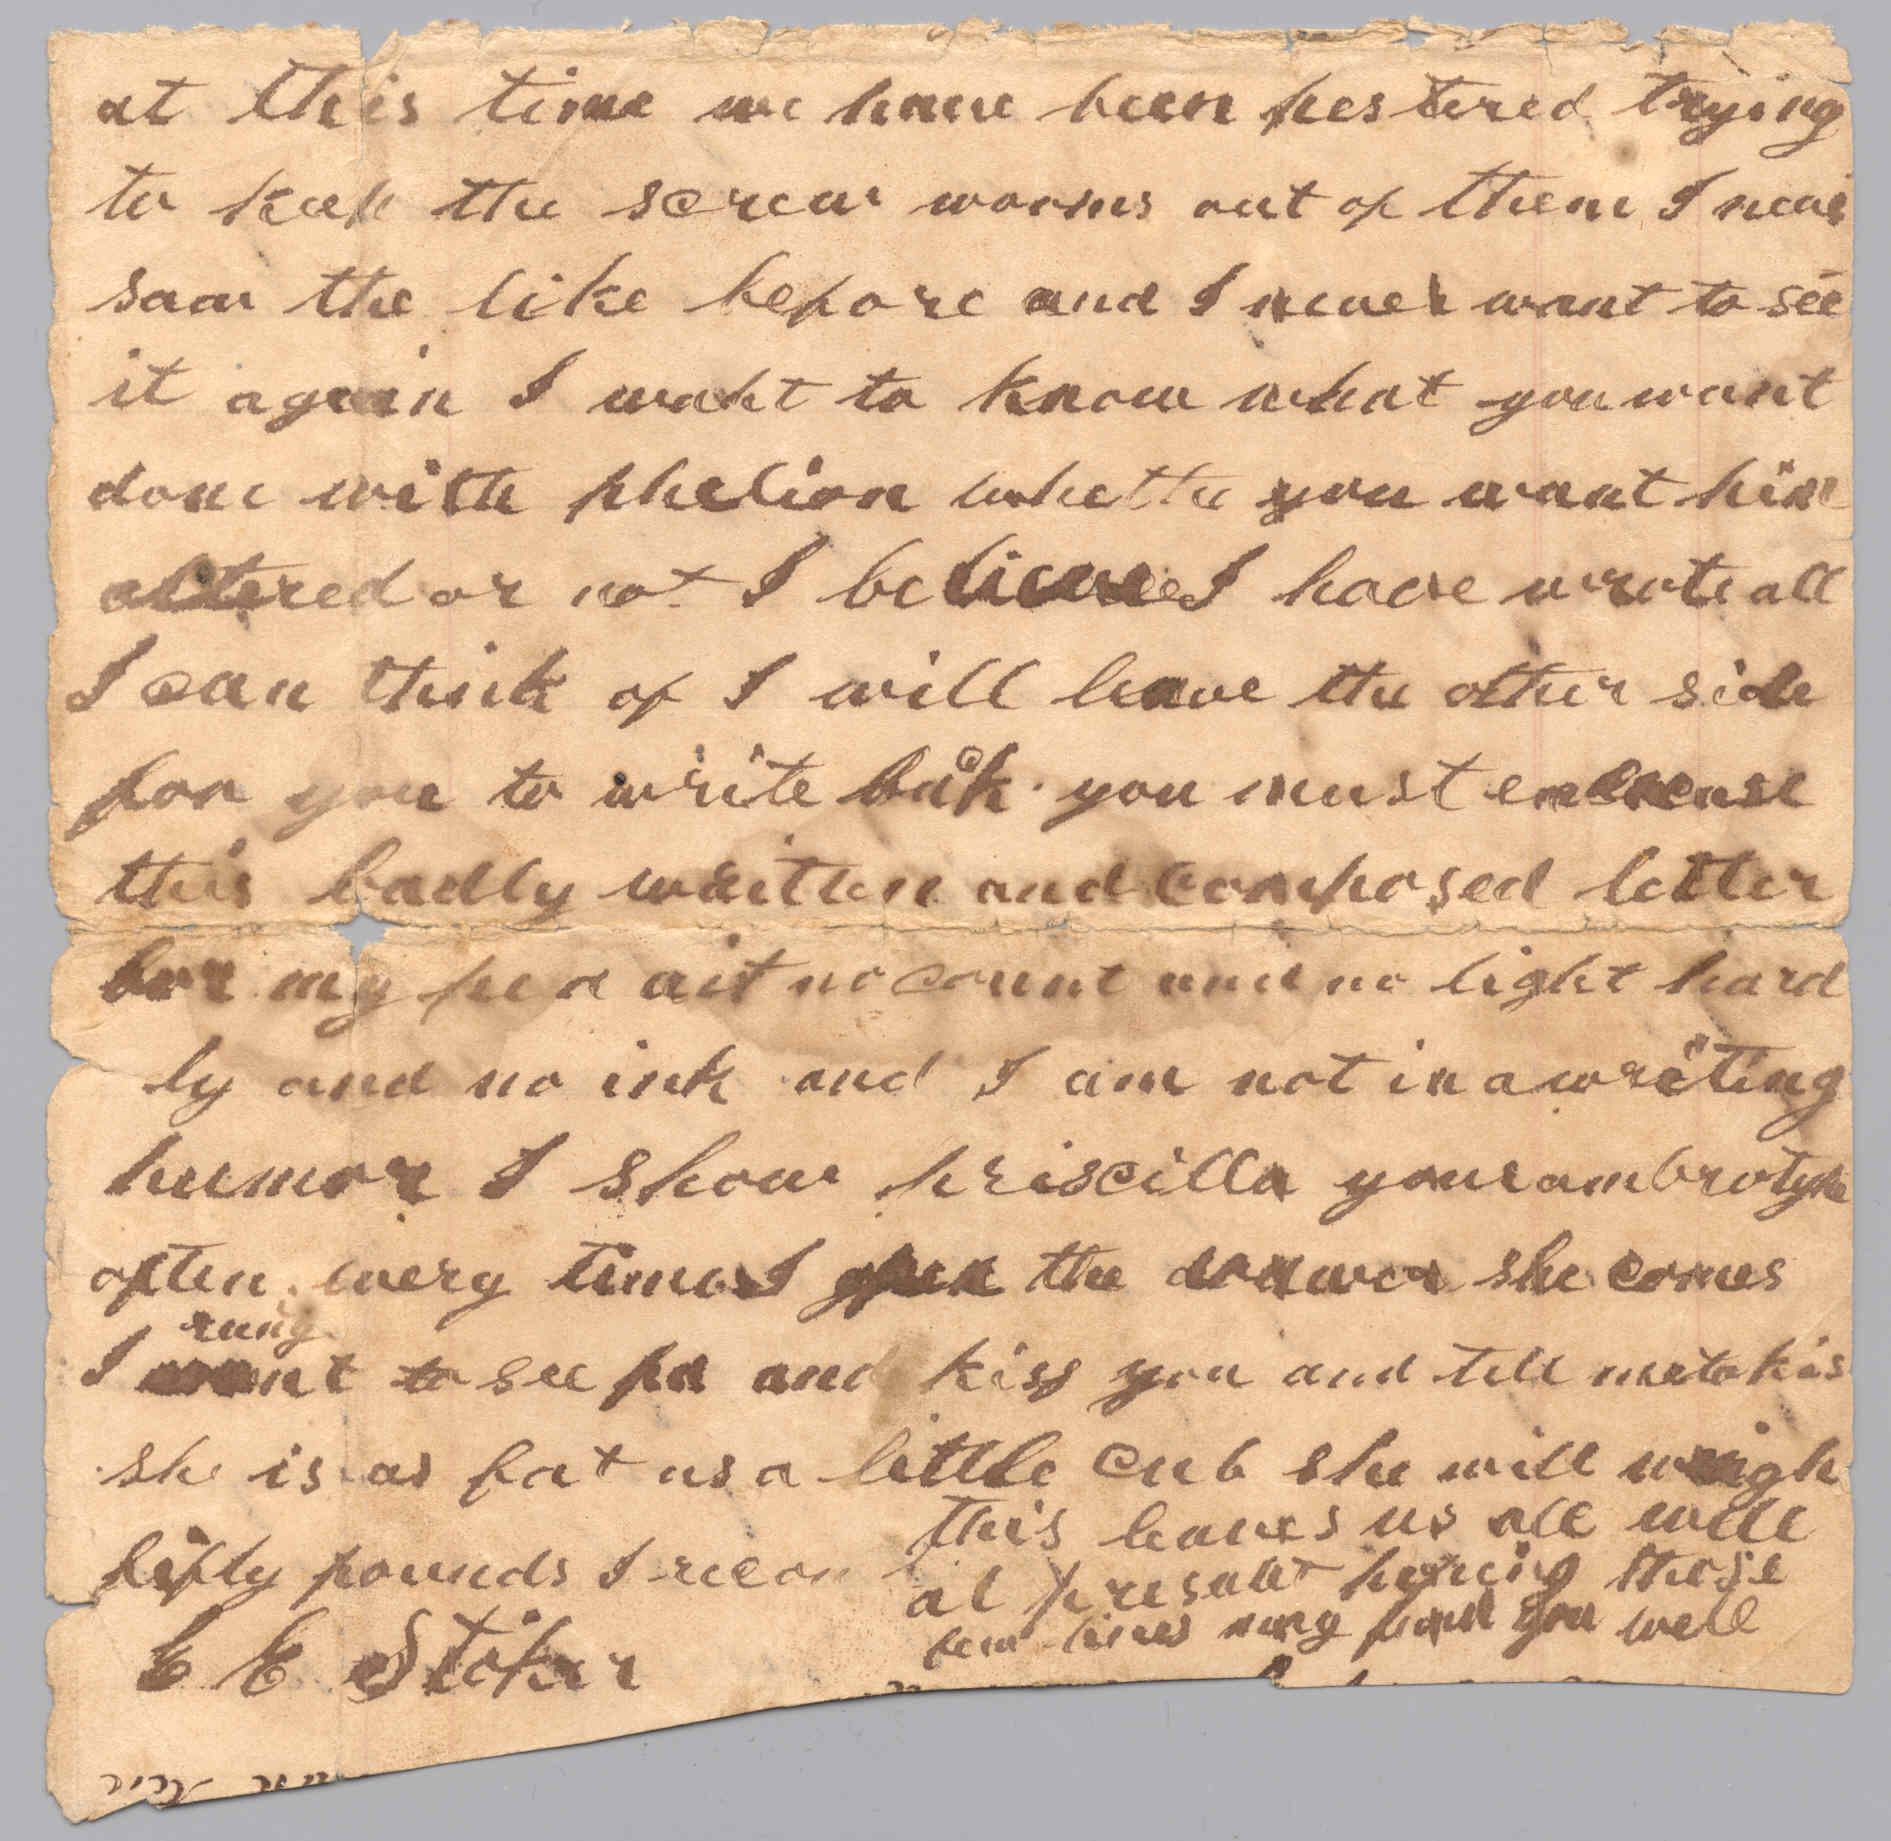 at this time we have been pestered trying
to keep the screw worms out of them I never
saw the like before and I never want to see
it again I want to know what you want
done with phelion whether you want him
altered or not I believe I have wrote all
I can think of I will leave the other side
for you to write back you must excuse
this badly written and composed letter
for my pen ait no count and no light hard
ly and no ink and I am not in a writing
humor I show priscilla your ambrotype
often every time I open the drawer she comes
runing
I want to see pa and kiss you and tell me to kis
she is as fat as a little cub she will weigh
fifty pounds I recon
this leaves us all well
at present hoping these
few lines may find you well
E E Stoker